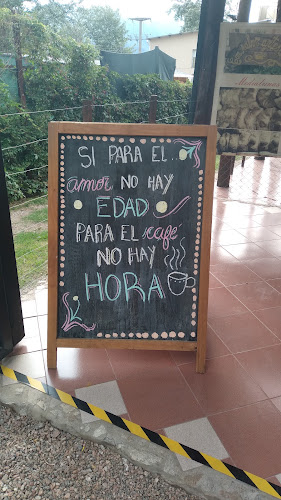 SI PARA EL...
amor NO HAY
EDAD
PARA EL café
NO HAY
HORA